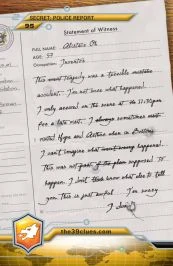 SECRET: POLICE REPORT
95
Statement of Witness
FULL NAME: Alistair Oh
AGE: 57
Occupation: Inventor
This tragedy was a terrible mistake
accident. I'm not sure what happened.
I only arrived on the scene at 11:30pm
for a late visit. I always sometimes
visited Hope and Arthur when in Boston.
I can't imagine what happened!
This was not part of the plan supposed to
happen. I don't know what else to tell
you. This is just awful. I'm sorry
I
the39clues.com